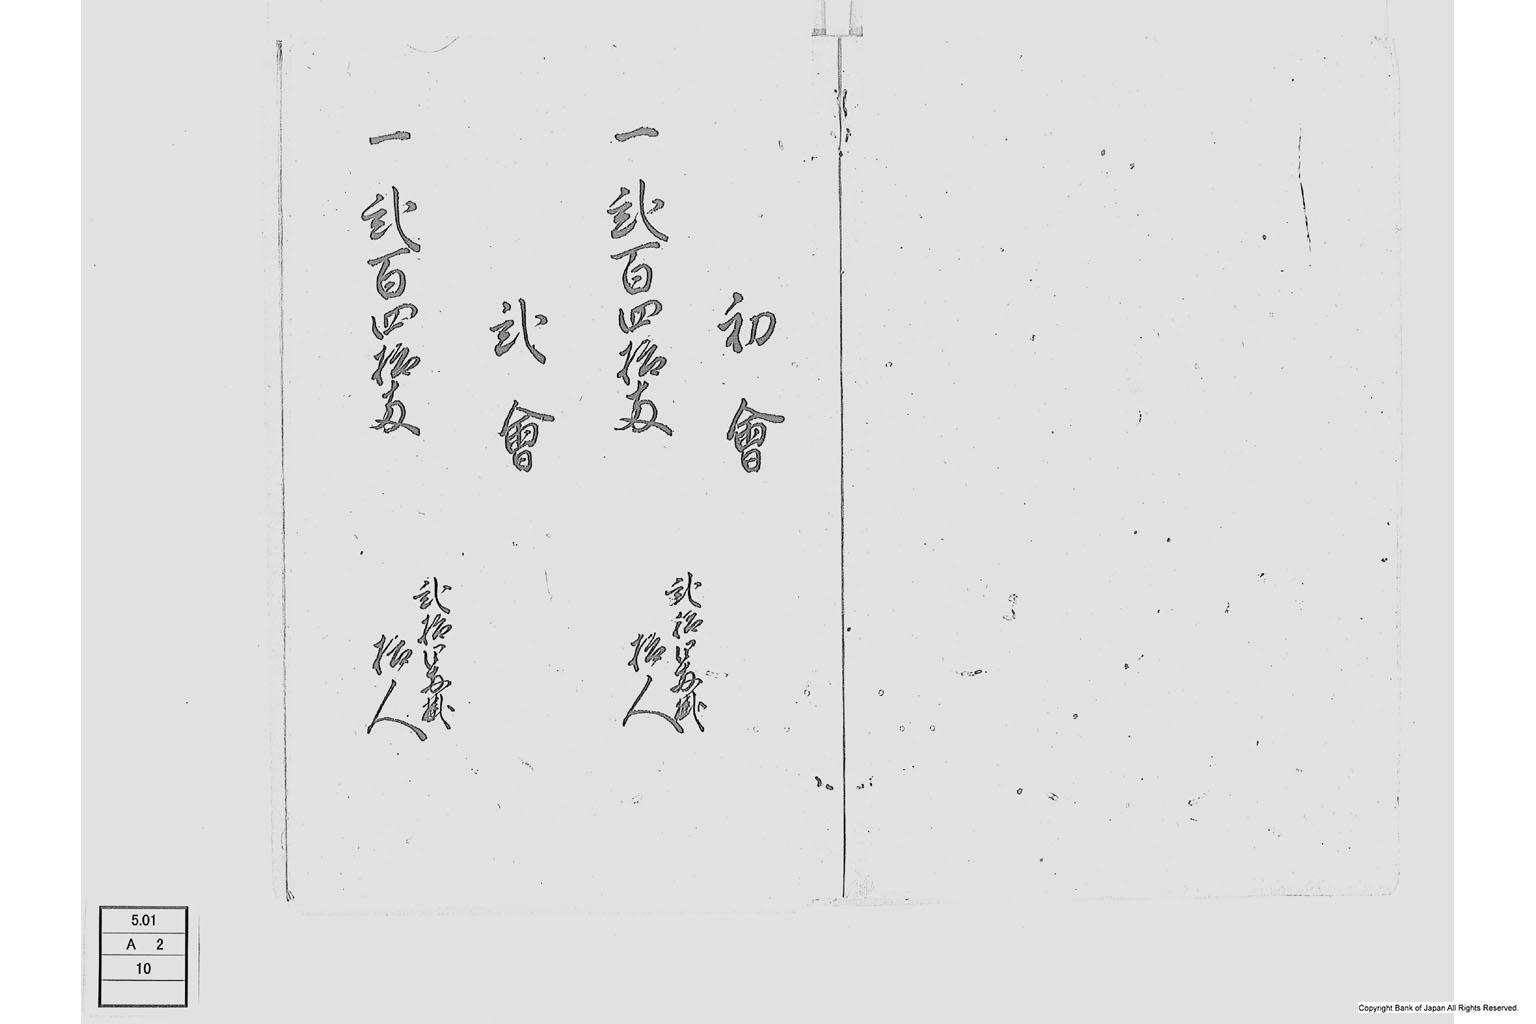 初會
一 弐百四拾両
弐拾四両掛
拾人
弐會
一 弐百四拾両
弐拾四両掛
拾人
5.01
A 2
10
Copyright Bank of Japan All Rights Reserved.